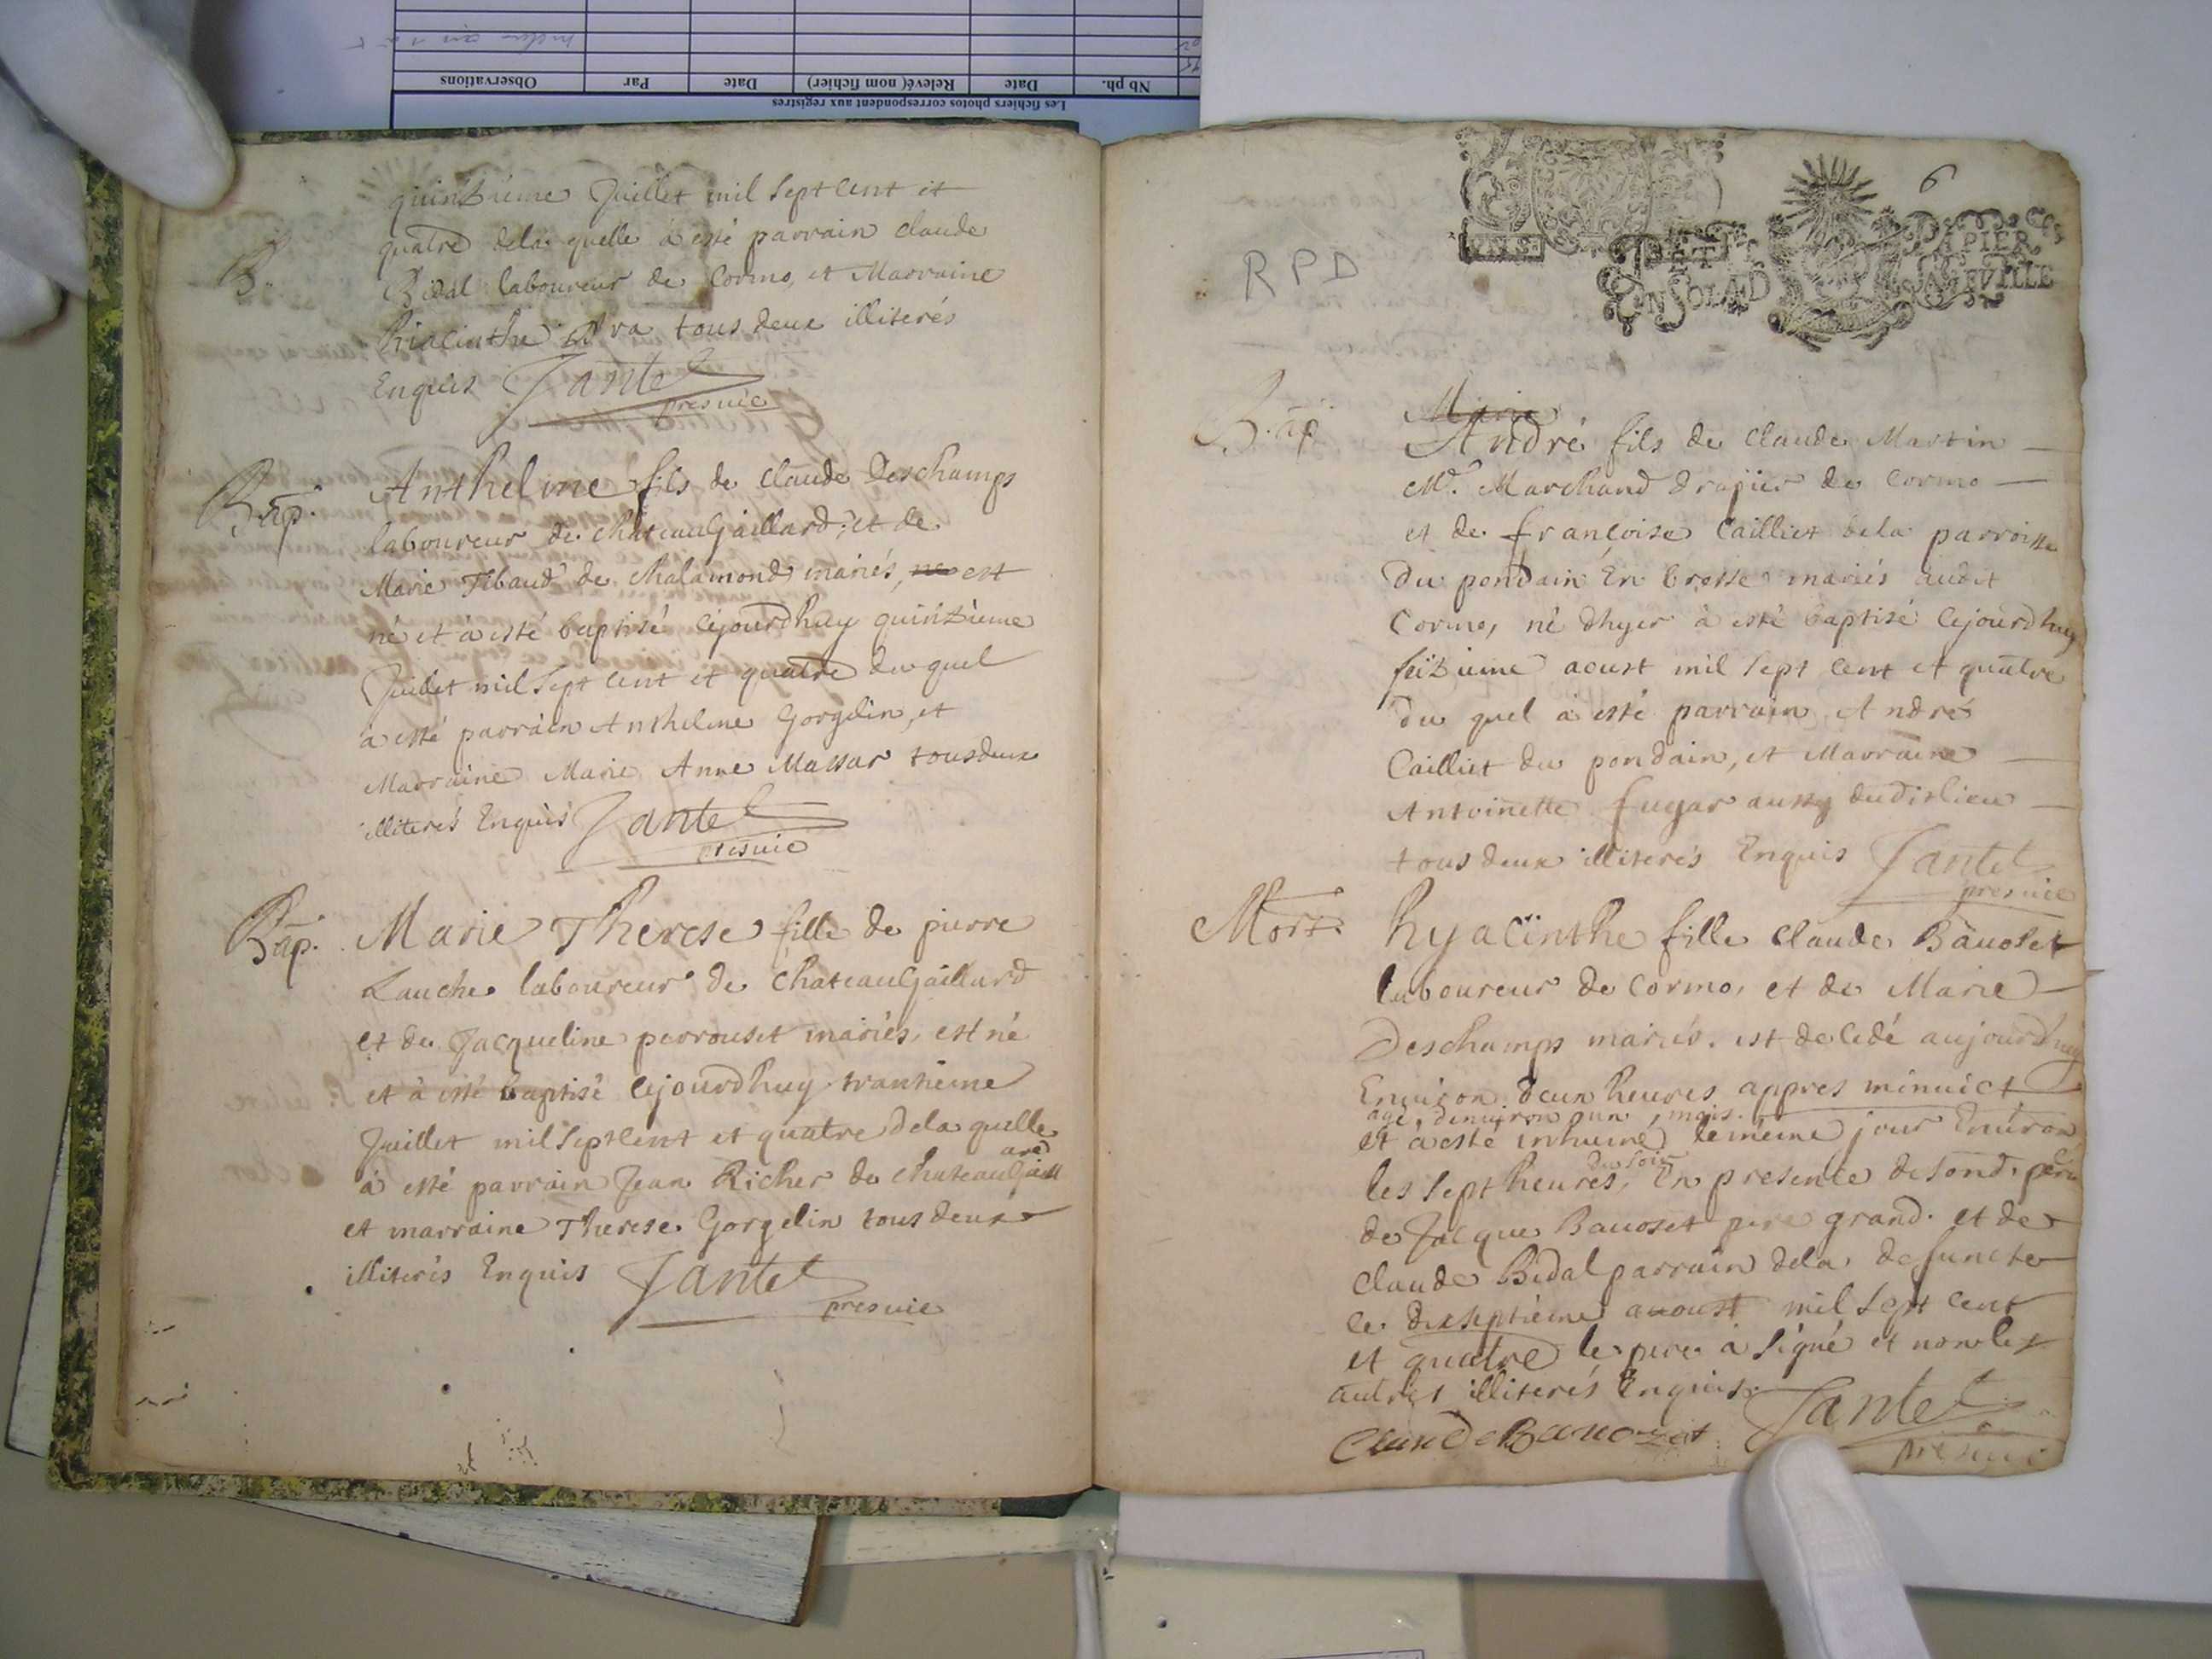 Les fichiers photos correspondent aux registres
Nb ph.
Date
Relevé( nom fichier)
Date
Par
Observations
B.
quinzieme Juillet mil sept cent et
quatre dela quelle à esté parrain claude
Bidal laboureur de Cormo, et Marraine
hiacinthe tous deux illiterés
Enquis Jantet
presvic
Bap.
Anthelme fils de Claude Deschamps
laboureur de chateauGaillard, et de
Marie Tibaud de chalamond mariés, ne est
né et à esté baptisé cejourdhuy quinzieme
Juillet mil sept cent et quatre du quel
à esté parrain Anthelme Gorgelin, et
Marraine Marie Anne Massar tousdeux
illiterés Enquis Jantet
presvic
Bap.
Marie Therese fille de pierre
Lauche laboureur de chateauGaillard
et de Jacqueline perrouset mariés, est né
et à esté baptisé cejourdhuy trantieme
Juillet mil sept cent et quatre dela quelle
à esté parrain Jean Richer de chateauGaill
ard
et marraine Therese Gorgelin tous deux
illiterés Enquis Jantet
presvic
6
RPD
PETIT
PAPIER
EN SOLAD
NEVILLE
Bap
Marie
André fils de claude Martin
Md. Marchand drapier de Cormo
et de françoise Cailliet dela parroisse
du pondain En bresse mariés audit
Cormo, né dhyer à esté baptisé cejourdhuy
seizieme aoust mil sept cent et quatre
du quel à esté parrain André
Cailliet du pondain, et Marraine
Antoinette fugar aussy dudit lieu
tous deux illiterés Enquis Jantet
presvic
Mort.
hyacinthe fille claude Bauoset
laboureur de Cormo, et de Marie
Deschamps mariés. est decedé aujourdhuy
Environ deux heures appres minuict
agé, denviron un, mois.
et à esté inhumé le méme jour Environ
les sept heures, du soir En presence de sond. pere
de Jacque Bauoset pere grand. et de
claude Bidal parrain dela defuncte
ce dixseptieme auoust mil sept cent
et quatre le pere à signé et non les
autres illiterés Enquis. Jantet
Claude Bauozet
presvic